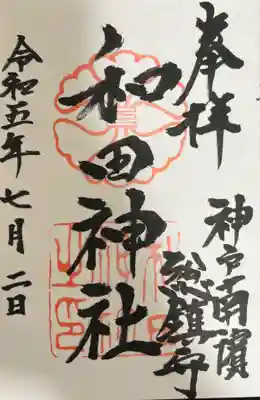 奉拝
神戸南濱
総鎮守
和田神社
令和五年七月二日